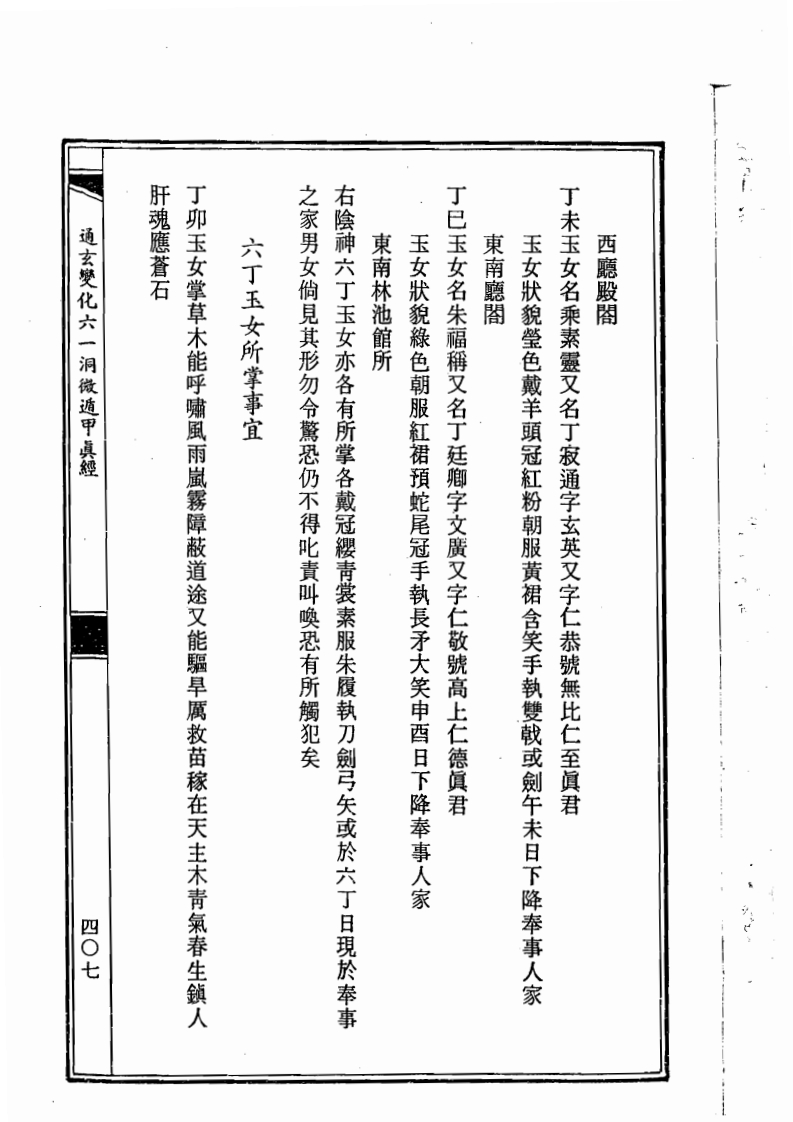 西廳殿閣
丁未玉女名乘素靈又名丁寂通字玄英又字仁恭號無比仁至眞君
玉女狀貌瑩色戴羊頭冠紅粉朝服黃裙含笑手執雙戟或劍午未日下降奉事人家
東南廳閣
丁巳玉女名朱福稱又名丁廷卿字文廣又字仁敬號高上仁德眞君
玉女狀貌綠色朝服紅裙預蛇尾冠手執長矛大笑申酉日下降奉事人家
東南林池館所
右陰神六丁玉女亦各有所掌各戴冠纓靑裳素服朱履執刀劍弓矢或於六丁日現於奉事
之家男女倘見其形勿令驚恐仍不得叱責叫喚恐有所觸犯矣
六丁玉女所掌事宜
丁卯玉女掌草木能呼嘯風雨嵐霧障蔽道途又能驅旱厲救苗稼在天主木靑氣春生鎭人
肝魂應蒼石
通玄變化六一洞微遁甲眞經
四〇七